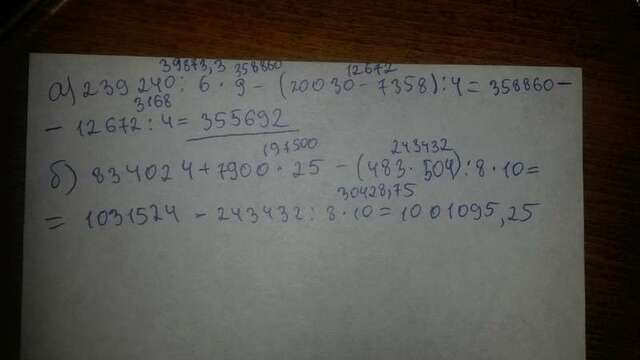 39873,3 358860 12672
а) 239 240 : 6 · 9 - (20030 - 7358) : 4 = 358860 -
3168
- 12672 : 4 = 355692
197500 243432
б) 834024 + 7900 · 25 - (483 · 504) : 8 · 10 =
30428,75
= 1031524 - 243432 : 8 · 10 = 1001095,25